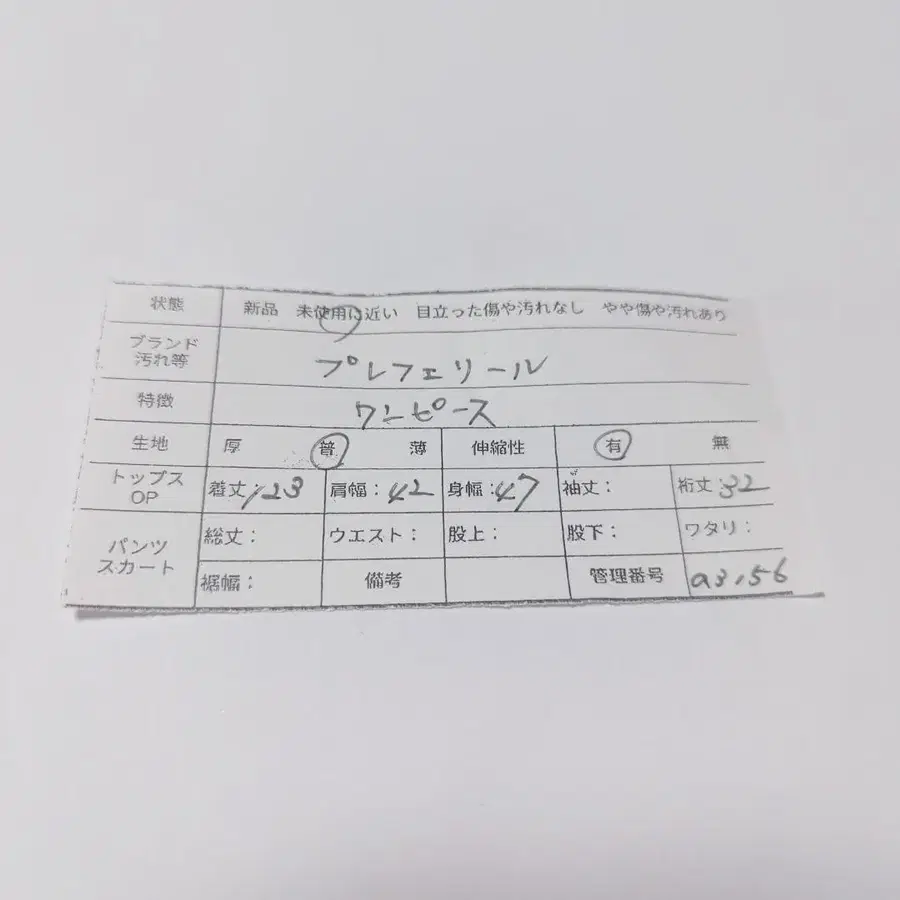 状態 新品 未使用に近い 目立った傷や汚れなし やや傷や汚れあり
ブランド
汚れ等 プレフェリール
特徴 ワンピース
生地 厚 普 薄 伸縮性 有 無
トップス
OP 着丈:123 肩幅:42 身幅:47 袖丈: 裄丈:32
パンツ
スカート 総丈: ウエスト: 股上: 股下: ワタリ:
裾幅: 備考 管理番号 a3,56